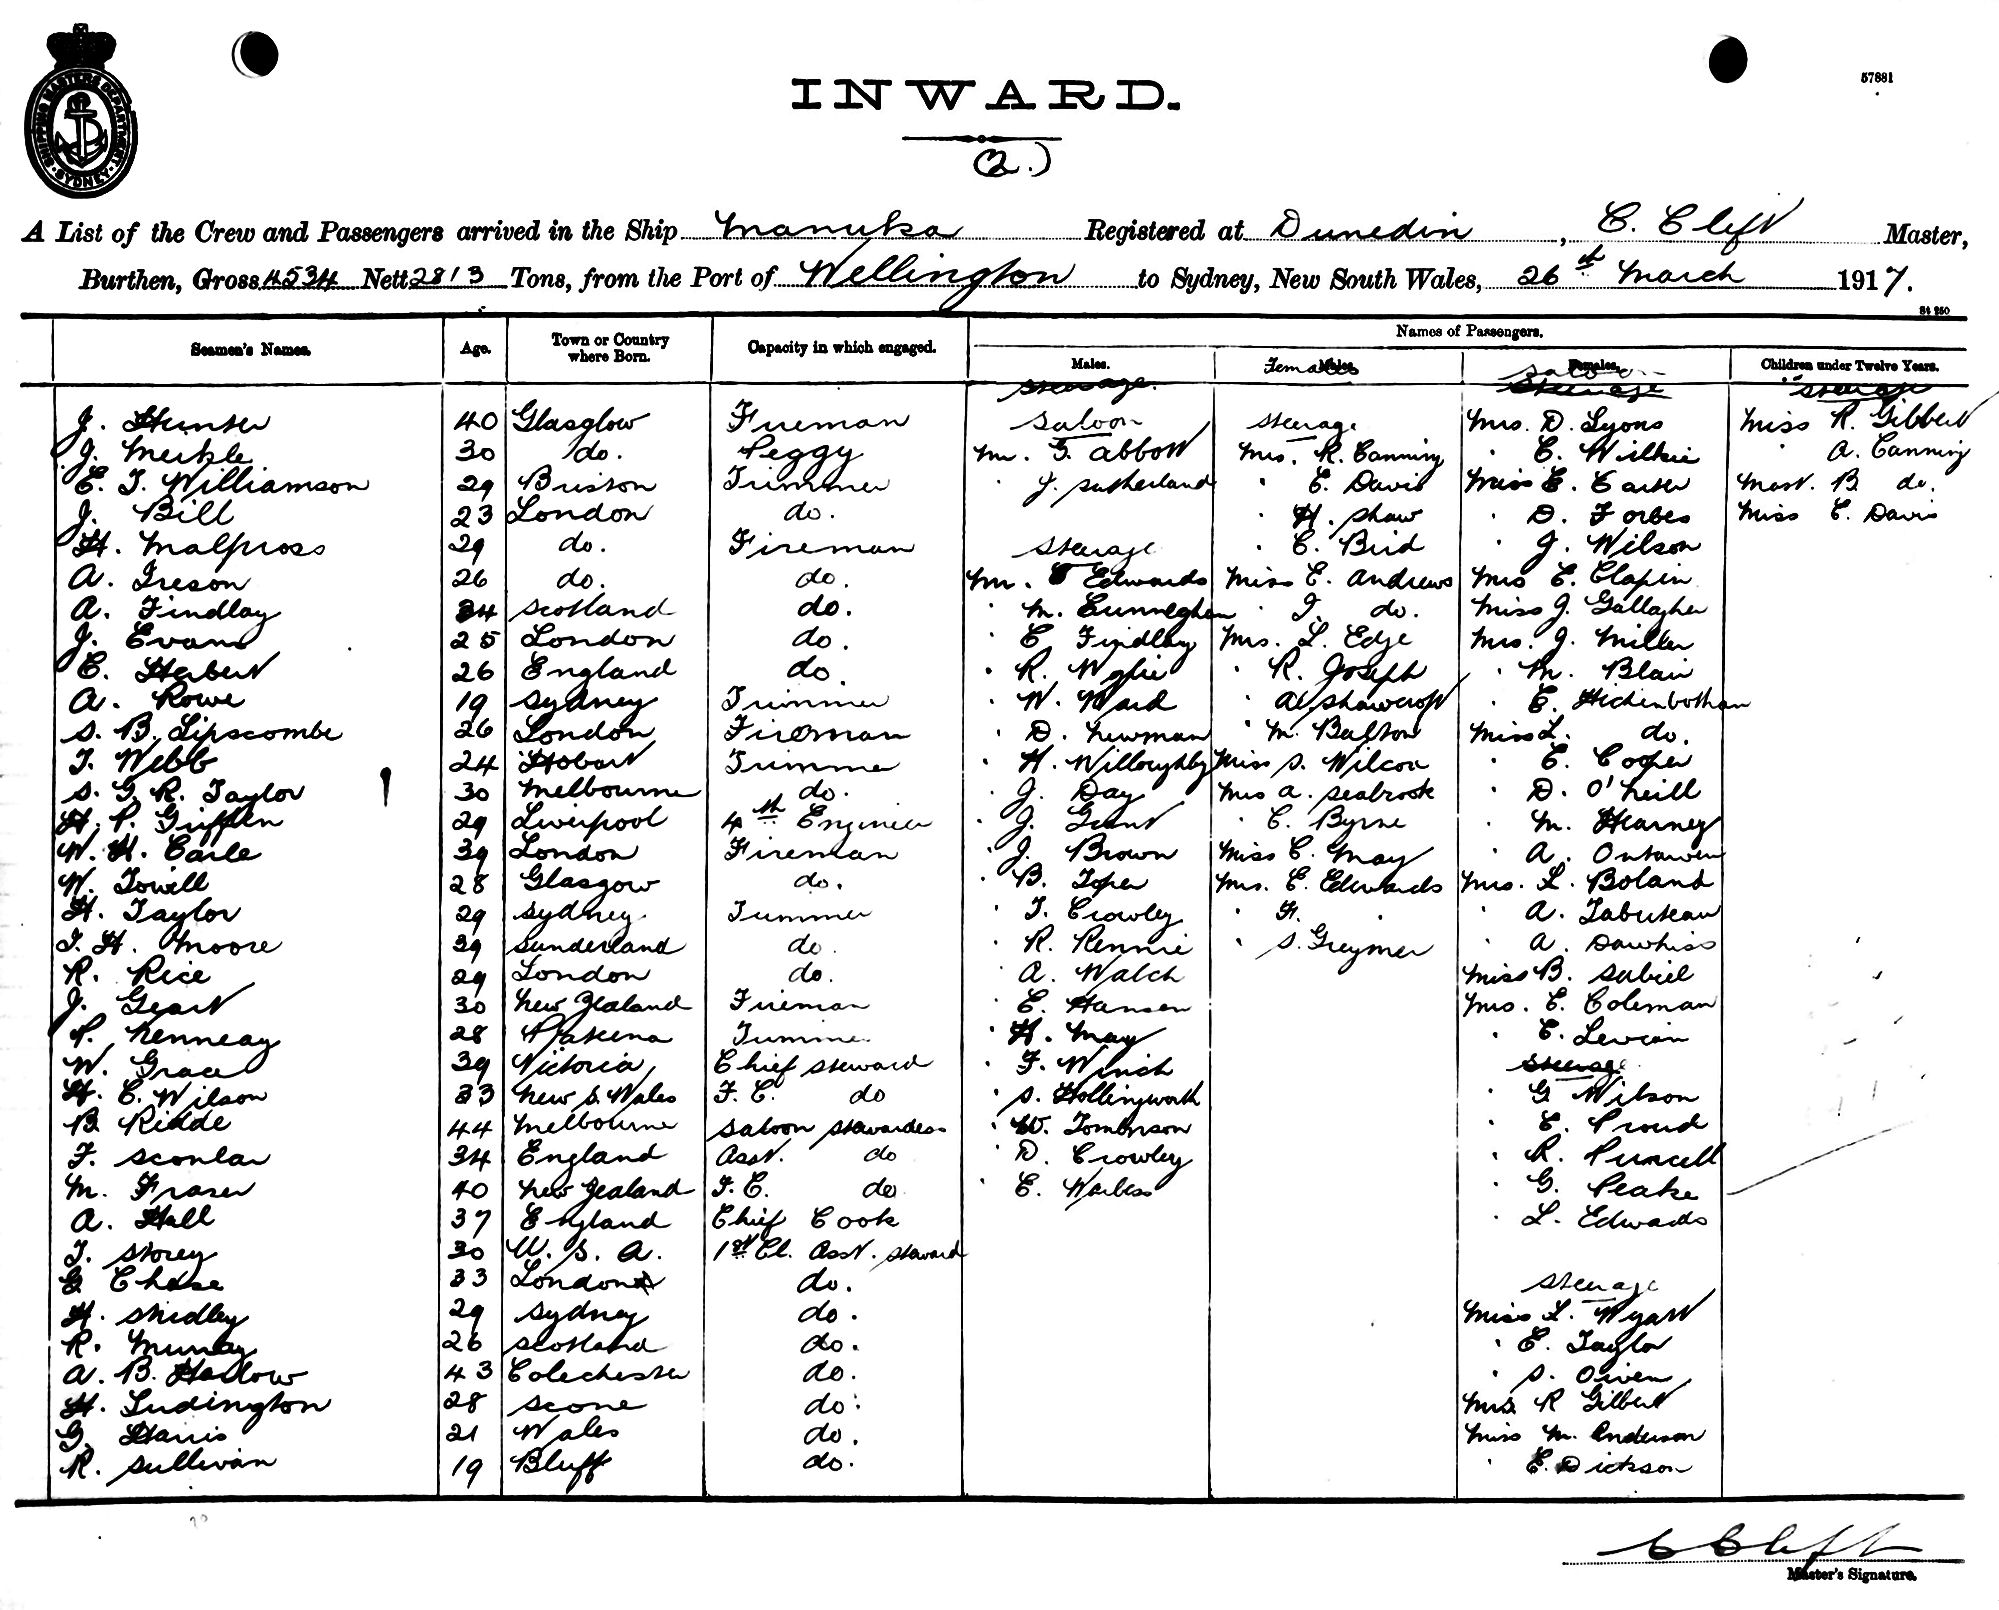 SHIPPING MASTERS DEPARTMENT. SYDNEY.
57881
INWARD.
(2.)
A List of the Crew and Passengers arrived in the Ship Manuka Registered at Dunedin, C. Clift Master,
Burthen, Gross 4534 Nett 2813 Tons, from the Port of Wellington to Sydney, New South Wales, 26th March 1917.
Seamen's Names. Age. Town or Country where Born. Capacity in which engaged. Names of Passengers.
Males. Females Females. Saloon Children under Twelve Years.
Steerage. Steerage Steerage
J. Hunter 40 Glasglow Fireman Saloon Steerage Mrs. D. Lyons Miss R. Gibbert
J. Meikle 30 do. Peggy Mr. G. Abbott Mrs. R. Canning " E. Wilkie " A. Canning
E. J. Williamson 29 Briston Trimmer " J. Sutherland " E. Davis Miss E. Carter Mast. B. do.
J. Bill 23 London do. " H. Shaw " D. Forbes Miss E. Davis
H. Malpross 29 do. Fireman Steerage " C. Bird " J. Wilson
A. Ireson 26 do. do. Mr. Edwards Miss E. Andrews Mrs E. Clapin
A. Findlay 34 Scotland do. " M. Cunneghem " J. do. Miss J. Gallagher
J. Evans 25 London do. " E Findlay Mrs. L. Edge Mrs. J. Miller
E. Herbert 26 England do. " R. Wylie " R. Joseph " M. Blair
A. Rowe 19 Sydney Trimmer " W. Ward " A Shawcroft " E. Hickinbotham
S. B. Lipscombe 26 London Fireman " D. Newman " M. Balton Miss L. do.
T. Webb 24 Hobart Trimmer " H. Willoughby Miss S. Wilcox " E. Cooper
S. G. R. Taylor 30 Melbourne do. " J. Day Mrs A. Seabrook " D. O'Neill
H. P. Griffin 29 Liverpool 4th Engineer " J. Grant " C. Byrne " M. Hearney
W. H. Earle 39 London Fireman " J. Brown Miss C. May " A.
W. Towill 28 Glasgow do. " B. Toper Mrs. E. Edwards Mrs. L. Boland
H. Taylor 29 Sydney. Trimmer " T. Crowley " H. " " A. Tabuteau
T. H. Moore 39 Sunderland do. " R. Rennie " S. Greymer " A. Dawkiss
R. Rice 29 London do. " A. Walch Miss B. Sabiel
J. Geart 30 New Zealand Fireman " E. Hansen Mrs. E. Coleman
P. Kenneay 28 Trimmer " H. May " E. Levian
W. Grace 39 Victoria Chief Steward " F. Winch Steerage
H. E. Wilson 33 New S. Wales F. C. do " S. Hollingworth " G Wilson
B. Ridde 44 Melbourne Saloon Stewardess " W. Tomlinson " E. Proud
F. Scanlan 34 England Asst. do " D. Crowley " R. Purcell
M. Fraser 40 New Zealand F. C. do " E. " G. Peake
A. Hall 37 England Chief Cook " L. Edwards
T. Storey 30 U. S. A. 1st Cl. Asst. Steward
G. Chase 33 London do. Steerage
H. Shidley 29 Sydney do. Miss L. Wyatt
R. Murray 26 Scotland do. " E. Taylor
A. B. Harlow 43 Colechester do. " S. Owen
H. Ludington 28 Scone do. Mrs R Gilbert
G. Harris 21 Wales do. Miss M. Anderson
R. Sullivan 19 Bluff do. " E. Dickson
C Clift
Master's Signature.